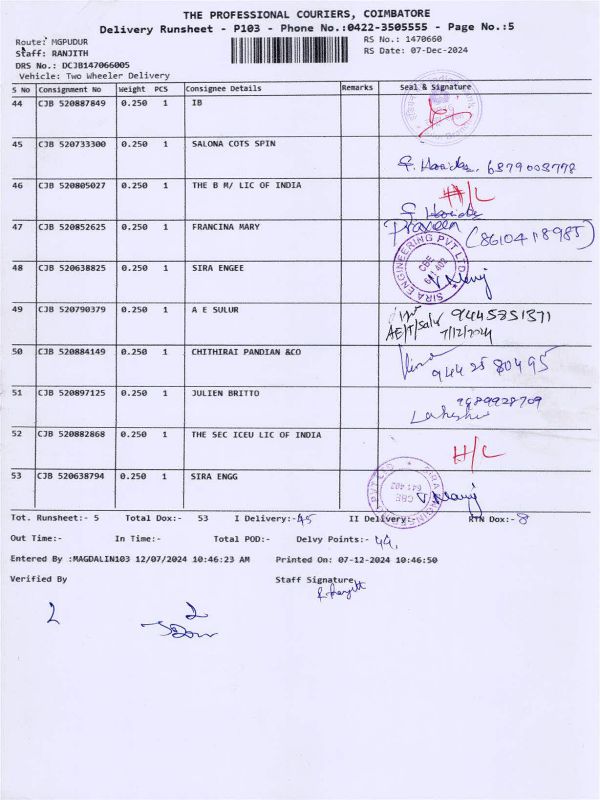 THE PROFESSIONAL COURIERS, COIMBATORE
Delivery Runsheet - P103 - Phone No.:0422-3505555 - Page No.:5
Route: MGPUDUR
RS No.: 1470660
Staff: RANJITH
RS Date: 07-Dec-2024
DRS No.: DCJB147066005
Vehicle: Two Wheeler Delivery
S No Consignment No Weight PCS Consignee Details Remarks Seal & Signature
44 CJB 520887849 0.250 1 IB
45 CJB 520733300 0.250 1 SALONA COTS SPIN
6379003778
46 CJB 520805027 0.250 1 THE B M/ LIC OF INDIA H/L
47 CJB 520852625 0.250 1 FRANCINA MARY Praveen (8610418985)
48 CJB 520638825 0.250 1 SIRA ENGEE SIRA ENGINEERING PVT LTD CBE 641 402
49 CJB 520790379 0.250 1 A E SULUR 9445351371
AE/T/Sulur 7/12/2024
50 CJB 520884149 0.250 1 CHITHIRAI PANDIAN &CO 9442580495
51 CJB 520897125 0.250 1 JULIEN BRITTO 9989928709
52 CJB 520882868 0.250 1 THE SEC ICEU LIC OF INDIA H/L
53 CJB 520638794 0.250 1 SIRA ENGG CBE 641 402
Tot. Runsheet:- 5 Total Dox:- 53 I Delivery:-45 II Delivery:- RTN Dox:-8
Out Time:- In Time:- Total POD:- Delvy Points:-44,
Entered By :MAGDALIN103 12/07/2024 10:46:23 AM Printed On: 07-12-2024 10:46:50
Verified By Staff Signature